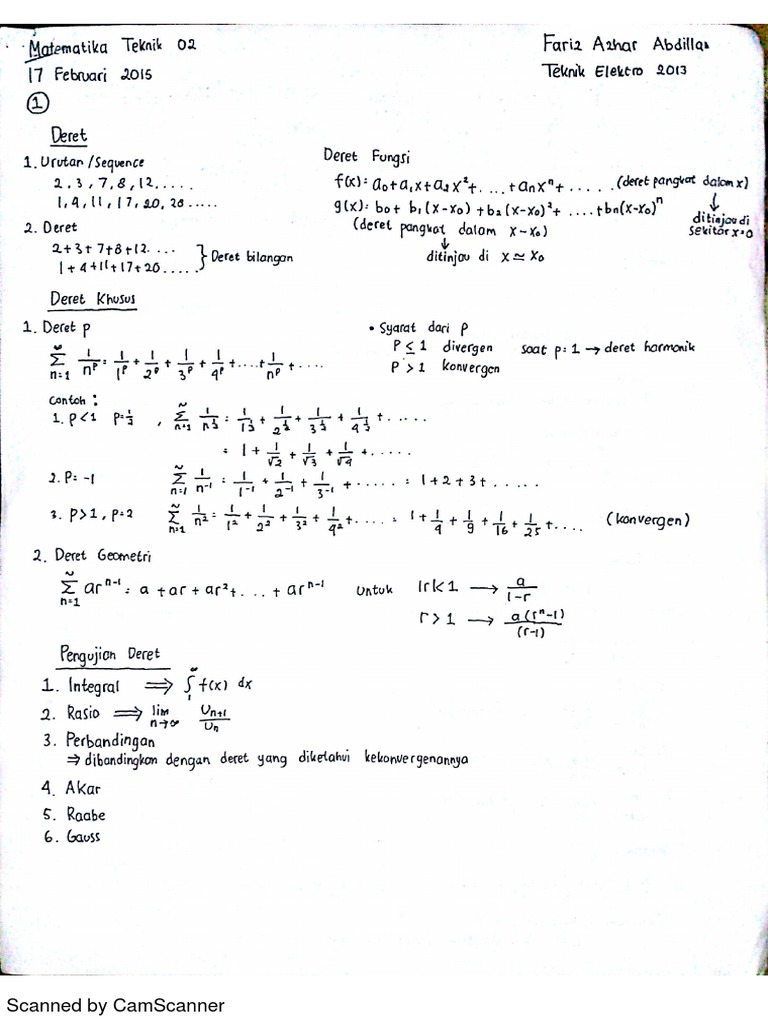 Matematika Teknik 02
17 Februari 2015
Fariz Azhar Abdillah
Teknik Elektro 2013
1
Deret
1. Urutan/Sequence
2, 3, 7, 8, 12.....
1, 4, 11, 17, 20, 26.....
2. Deret
2+3+7+8+12....
1+4+11+17+20.....
} Deret bilangan
Deret Fungsi
f(x): a₀+a₁x+a₂x²+....+aₙxⁿ+..... (deret pangkat dalam x)
↓ ditinjau di sekitar x=0
g(x): b₀+ b₁(x-x₀)+b₂(x-x₀)²+....+bₙ(x-x₀)ⁿ
(deret pangkat dalam x-x₀)
↓
ditinjau di x ≃ x₀
Deret Khusus
1. Deret p
∑ n=1 ∞ 1/nᵖ = 1/1ᵖ + 1/2ᵖ + 1/3ᵖ + 1/4ᵖ +....+ 1/nᵖ +....
• Syarat dari P
P ≤ 1 divergen
P > 1 konvergen
saat p=1 → deret harmonik
Contoh :
1. P<1 P=1/2 , ∑ n=1 ∞ 1/n^½ = 1/1^½ + 1/2^½ + 1/3^½ + 1/4^½ +.....
= 1 + 1/√2 + 1/√3 + 1/√4 +.....
2. P= -1 ∑ n=1 ∞ 1/n⁻¹ = 1/1⁻¹ + 1/2⁻¹ + 1/3⁻¹ +..... = 1+2+3+.....
3. P>1, P=2 ∑ n=1 ∞ 1/n² = 1/1² + 1/2² + 1/3² + 1/4² +.... = 1+ 1/4 + 1/9 + 1/16 + 1/25 +.... (konvergen)
2. Deret Geometri
∑ n=1 ∞ arⁿ⁻¹ = a + ar + ar² +....+ arⁿ⁻¹ untuk |r|<1 → a/(1-r)
r>1 → a(rⁿ-1)/(r-1)
Pengujian Deret
1. Integral ⟹ ∫₁^∞ f(x) dx
2. Rasio ⟹ lim n→∞ Uₙ₊₁/Uₙ
3. Perbandingan
⇒ dibandingkan dengan deret yang diketahui kekonvergenannya
4. Akar
5. Raabe
6. Gauss
Scanned by CamScanner